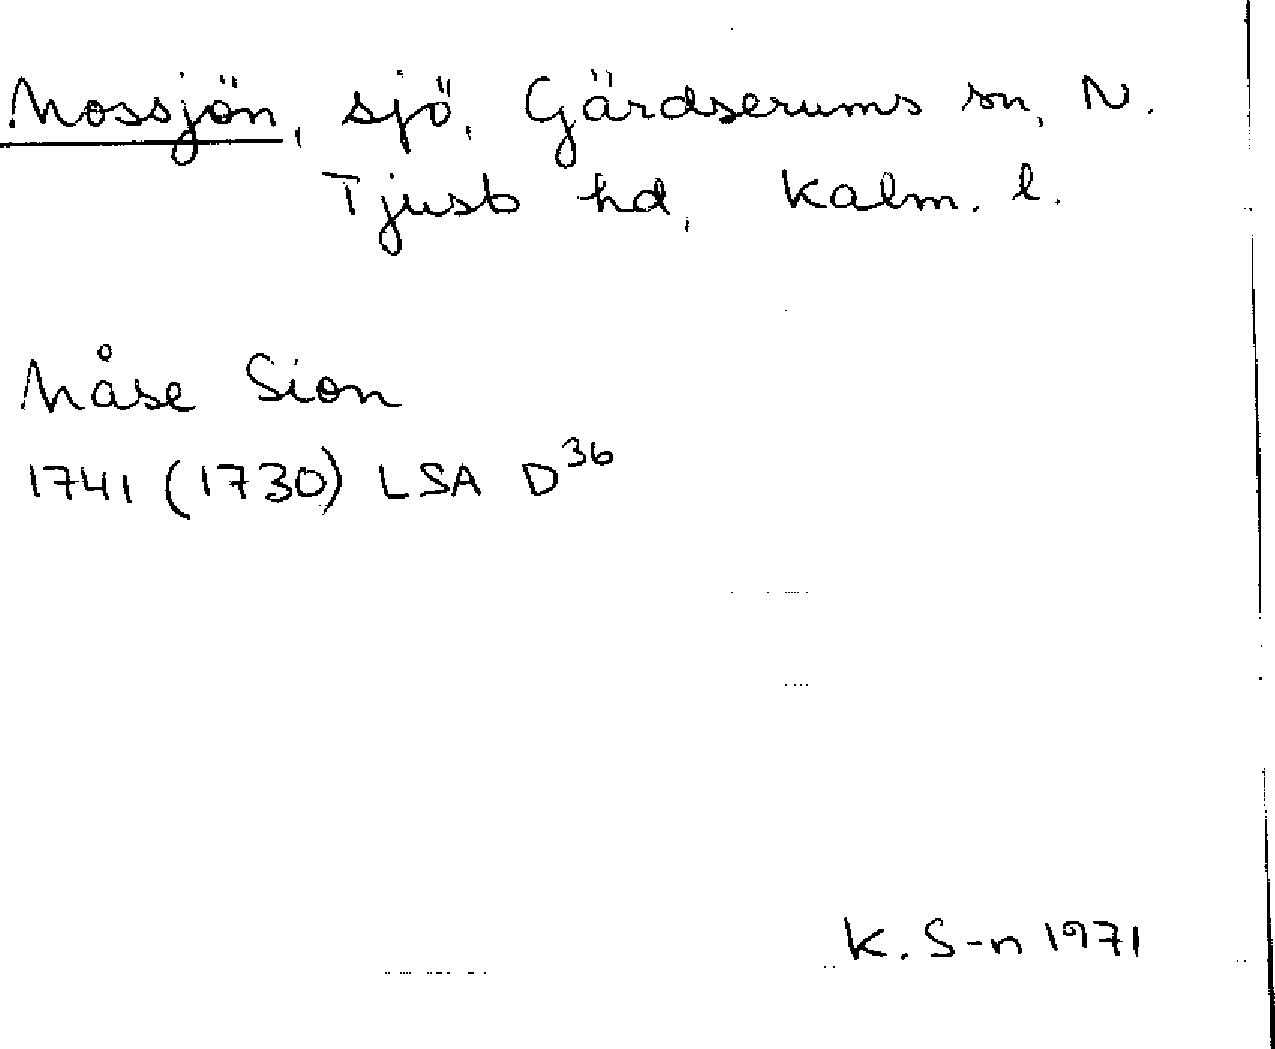 Mossjön, sjö, Gärdserums sn, N.
Tjusb hd, Kalm. l.
Måse Sion
1741 (1730) LSA D36
K. S-n 1971